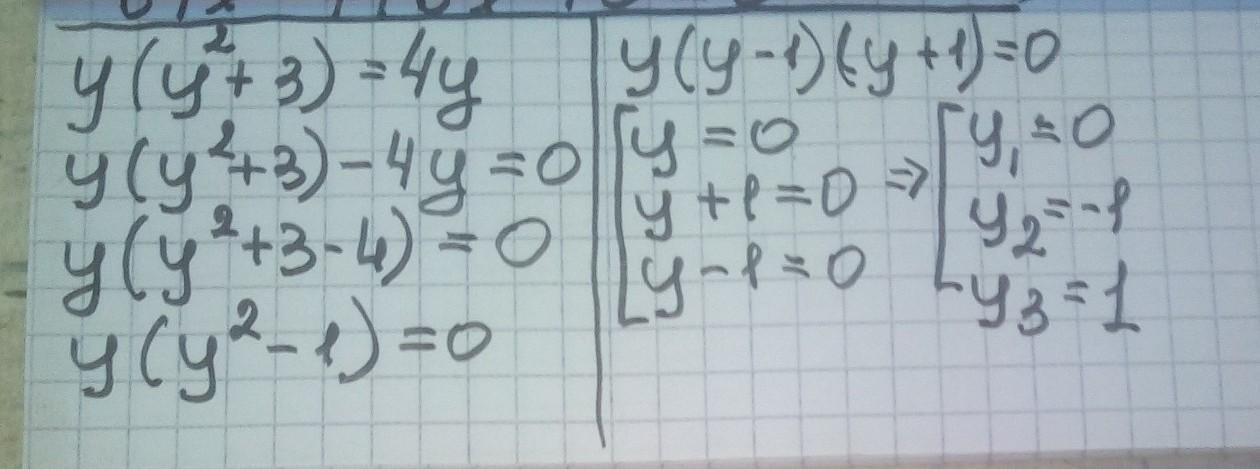 y(y²+3)=4y
y(y²+3)-4y=0
y(y²+3-4)=0
y(y²-1)=0
y(y-1)(y+1)=0
[y=0 ⇒ [y₁=0
y+1=0 y₂=-1
y-1=0 y₃=1